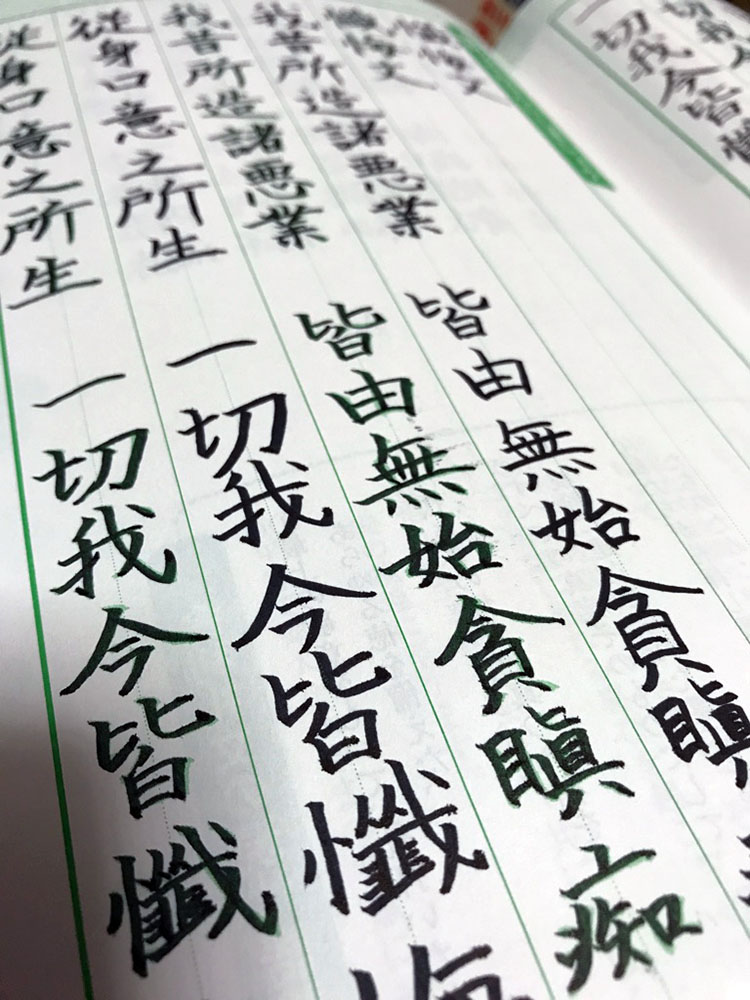 切我
一切我今皆懺
懺悔文
懺悔文
我昔所造諸悪業 皆由無始貪瞋
我昔所造諸悪業 皆由無始貪瞋痴
從身口意之所生 一切我今皆懺悔
從身口意之所生 一切我今皆懺